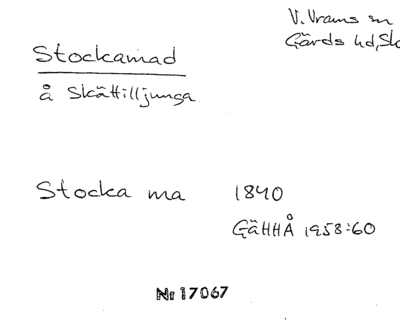 V. Vrams sn
Gärds hd, Sk
Stockamad
å Skättilljunga
Stocka ma 1840
GÄHHÅ 1958:60
Nr 17067